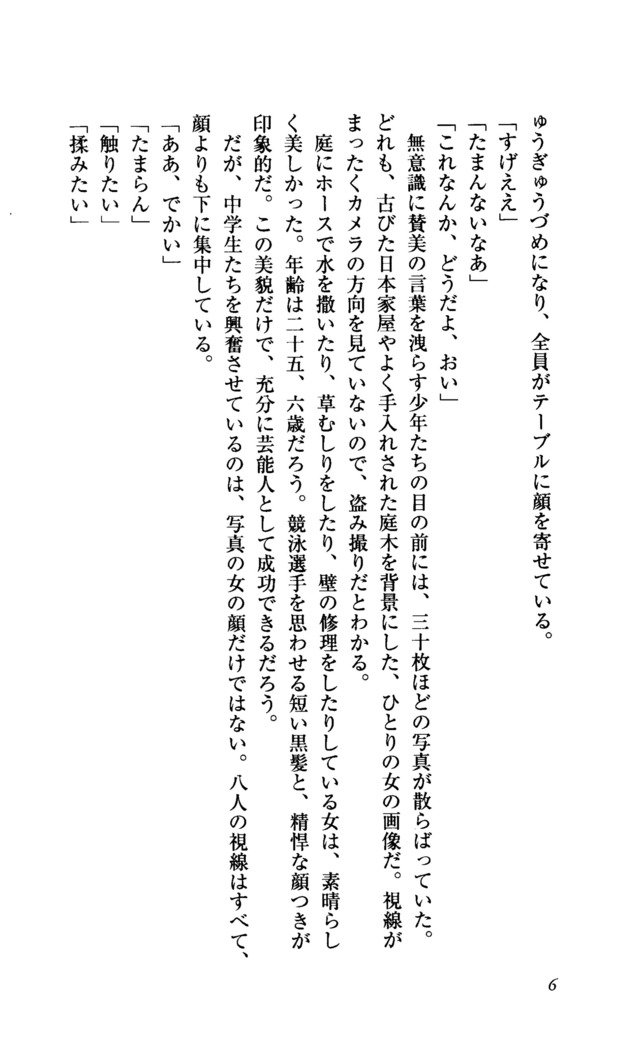 ゅうぎゅうづめになり、全員がテーブルに顔を寄せている。
「すげええ」
「たまんないなあ」
「これなんか、どうだよ、おい」
　無意識に賛美の言葉を洩らす少年たちの目の前には、三十枚ほどの写真が散らばっていた。
どれも、古びた日本家屋やよく手入れされた庭木を背景にした、ひとりの女の画像だ。視線が
まったくカメラの方向を見ていないので、盗み撮りだとわかる。
　庭にホースで水を撒いたり、草むしりをしたり、壁の修理をしたりしている女は、素晴らし
く美しかった。年齢は二十五、六歳だろう。競泳選手を思わせる短い黒髪と、精悍な顔つきが
印象的だ。この美貌だけで、充分に芸能人として成功できるだろう。
　だが、中学生たちを興奮させているのは、写真の女の顔だけではない。八人の視線はすべて、
顔よりも下に集中している。
「ああ、でかい」
「たまらん」
「触りたい」
「揉みたい」
6